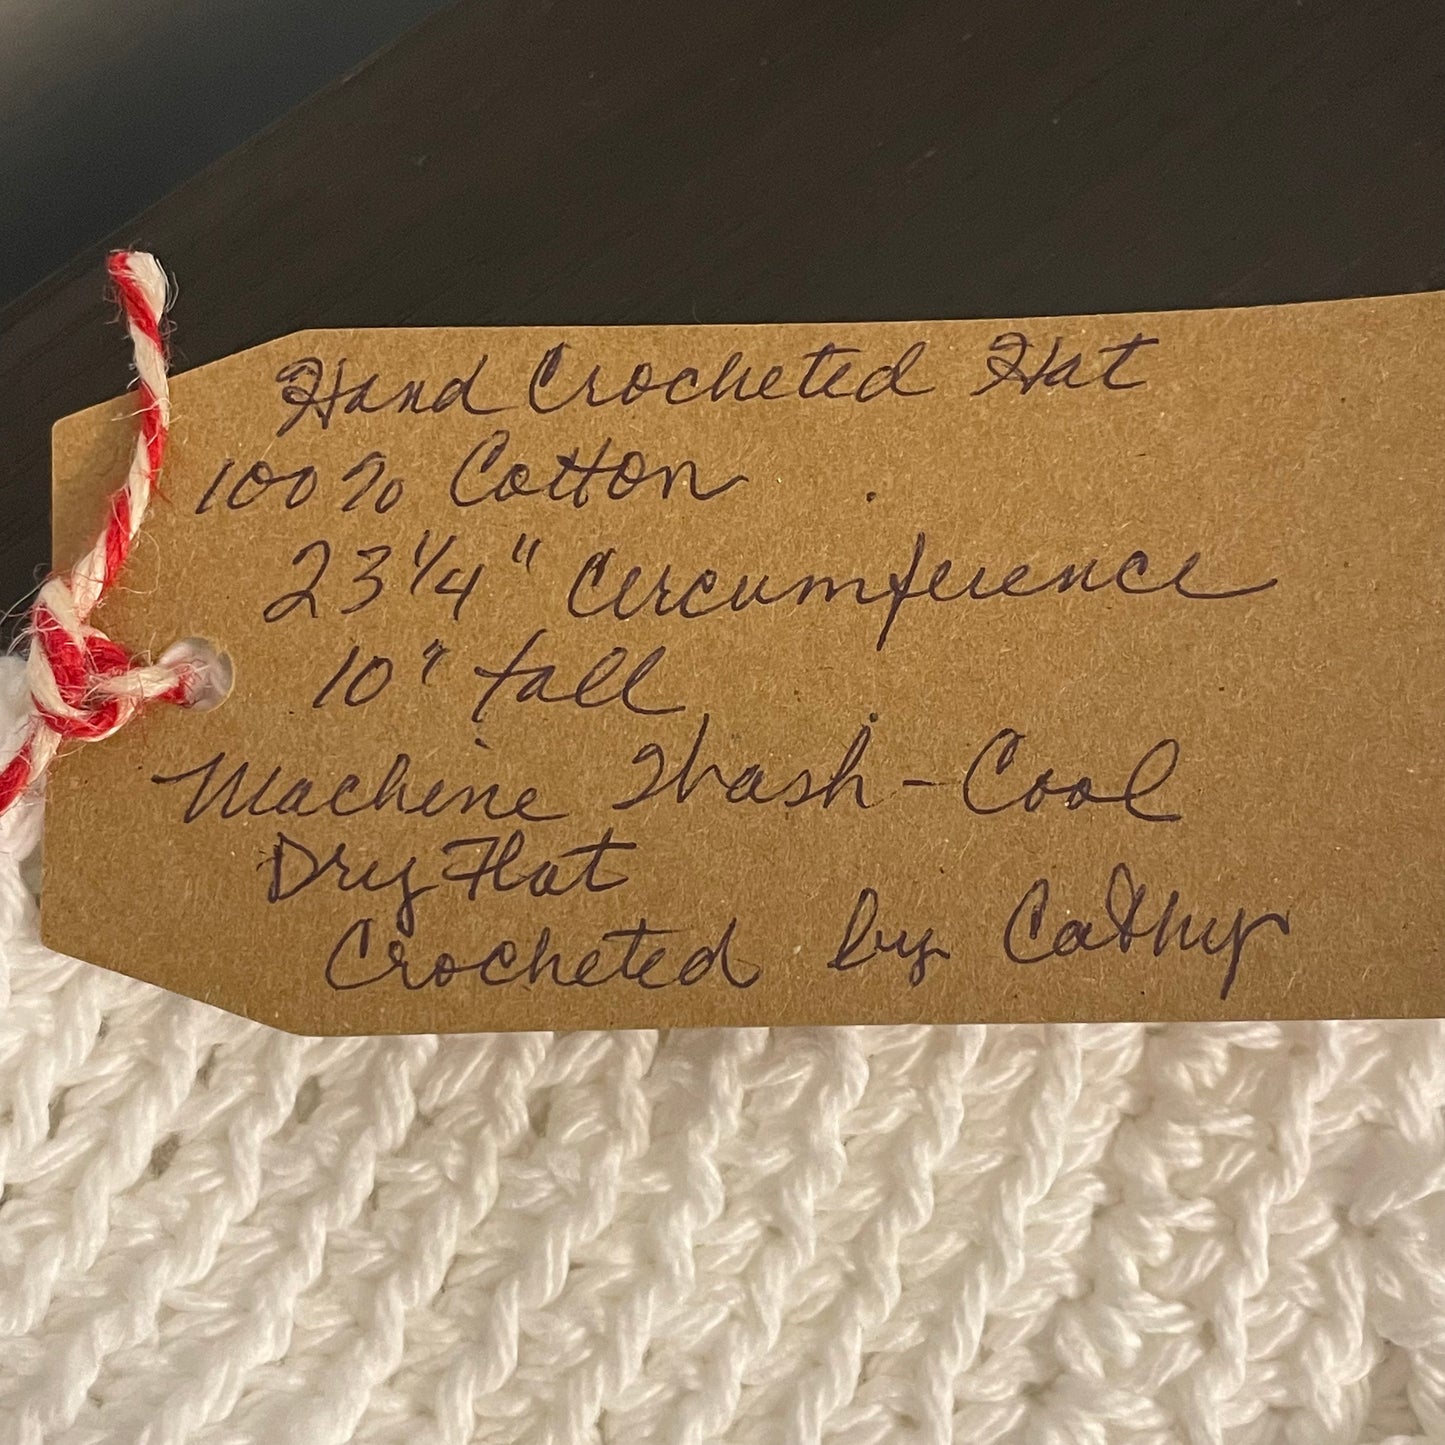 Hand Crocheted Hat
100% Cotton
23 1/4" Circumference
10" tall
Machine Wash - Cool
Dry Flat
Crocheted by Cathy